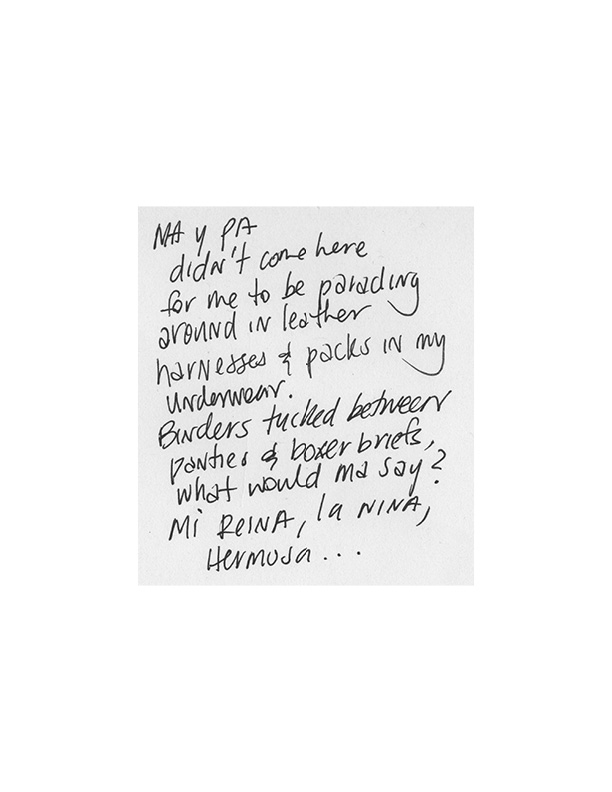 MA y PA
didn't come here
for me to be parading
around in leather
harnesses & packs in my
underwear.
Binders tucked between
panties & boxer briefs,
what would ma say?
Mi REINA, la NINA,
Hermosa...